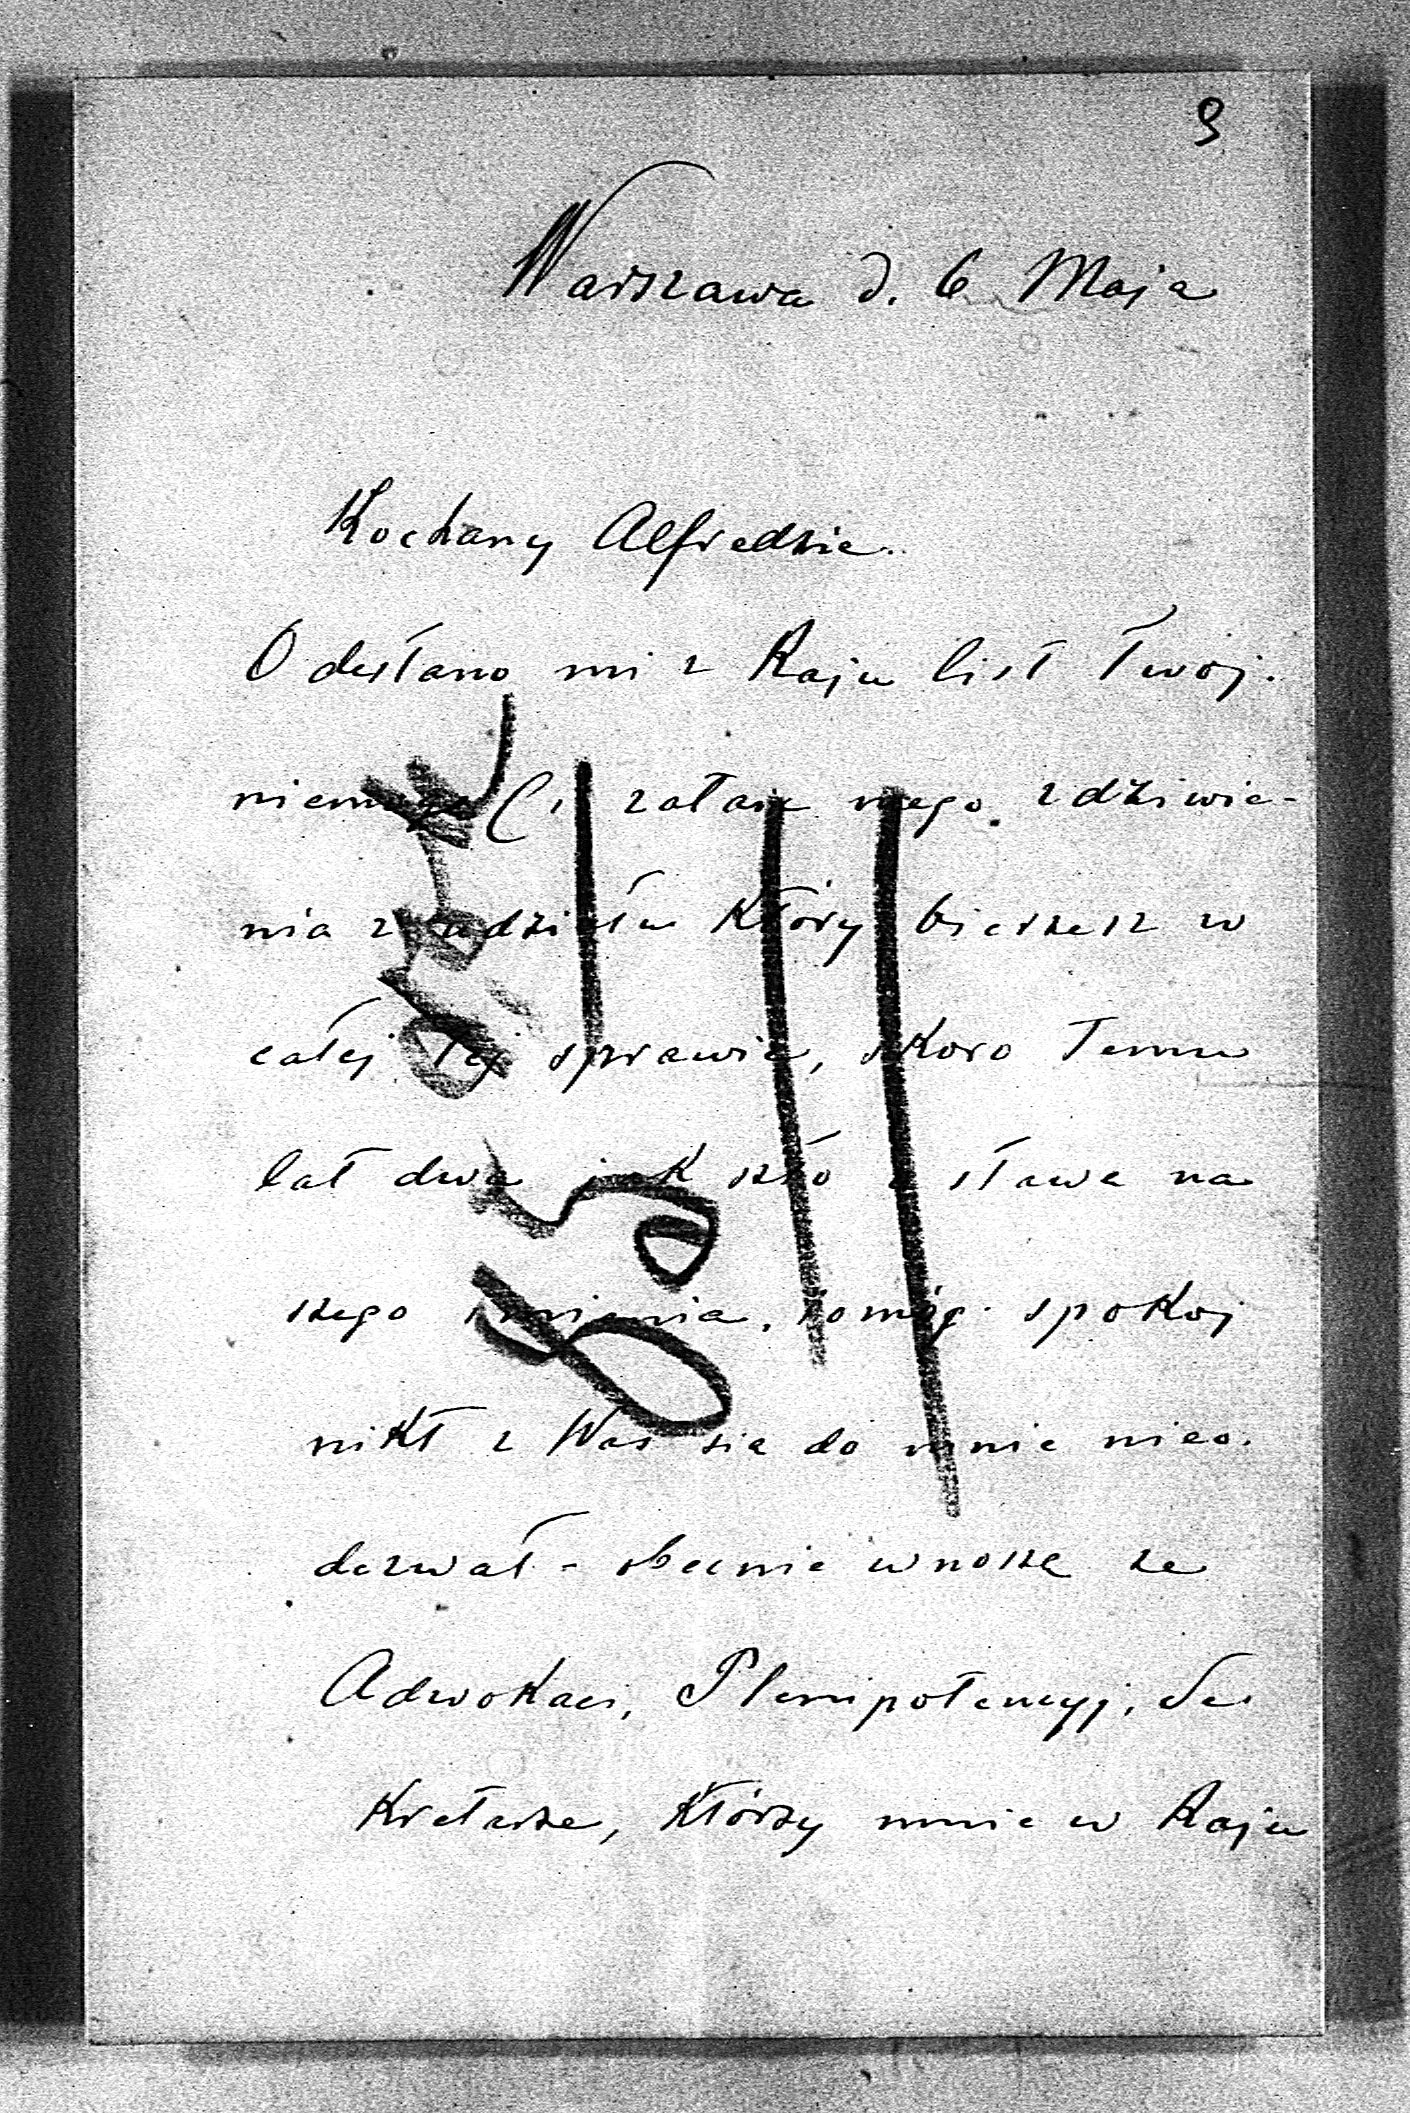 9
Warszawa d. 6 Maja
Kochany Alfredzie.
Odesłano mi z Raju list Twój.
niemogę Ci zataić mego zdziwie-
nia z udziału który bierzesz w
całej tej sprawie, skoro temu
lat dwa jak szło o sławę na
szego imienia, i o mój spokój
nikt z Was się do mnie nieo.
dezwał - obecnie wnoszę ze
Adwokaci, Plenipotencyj, Se.
kretarze, którzy mnie w Raju